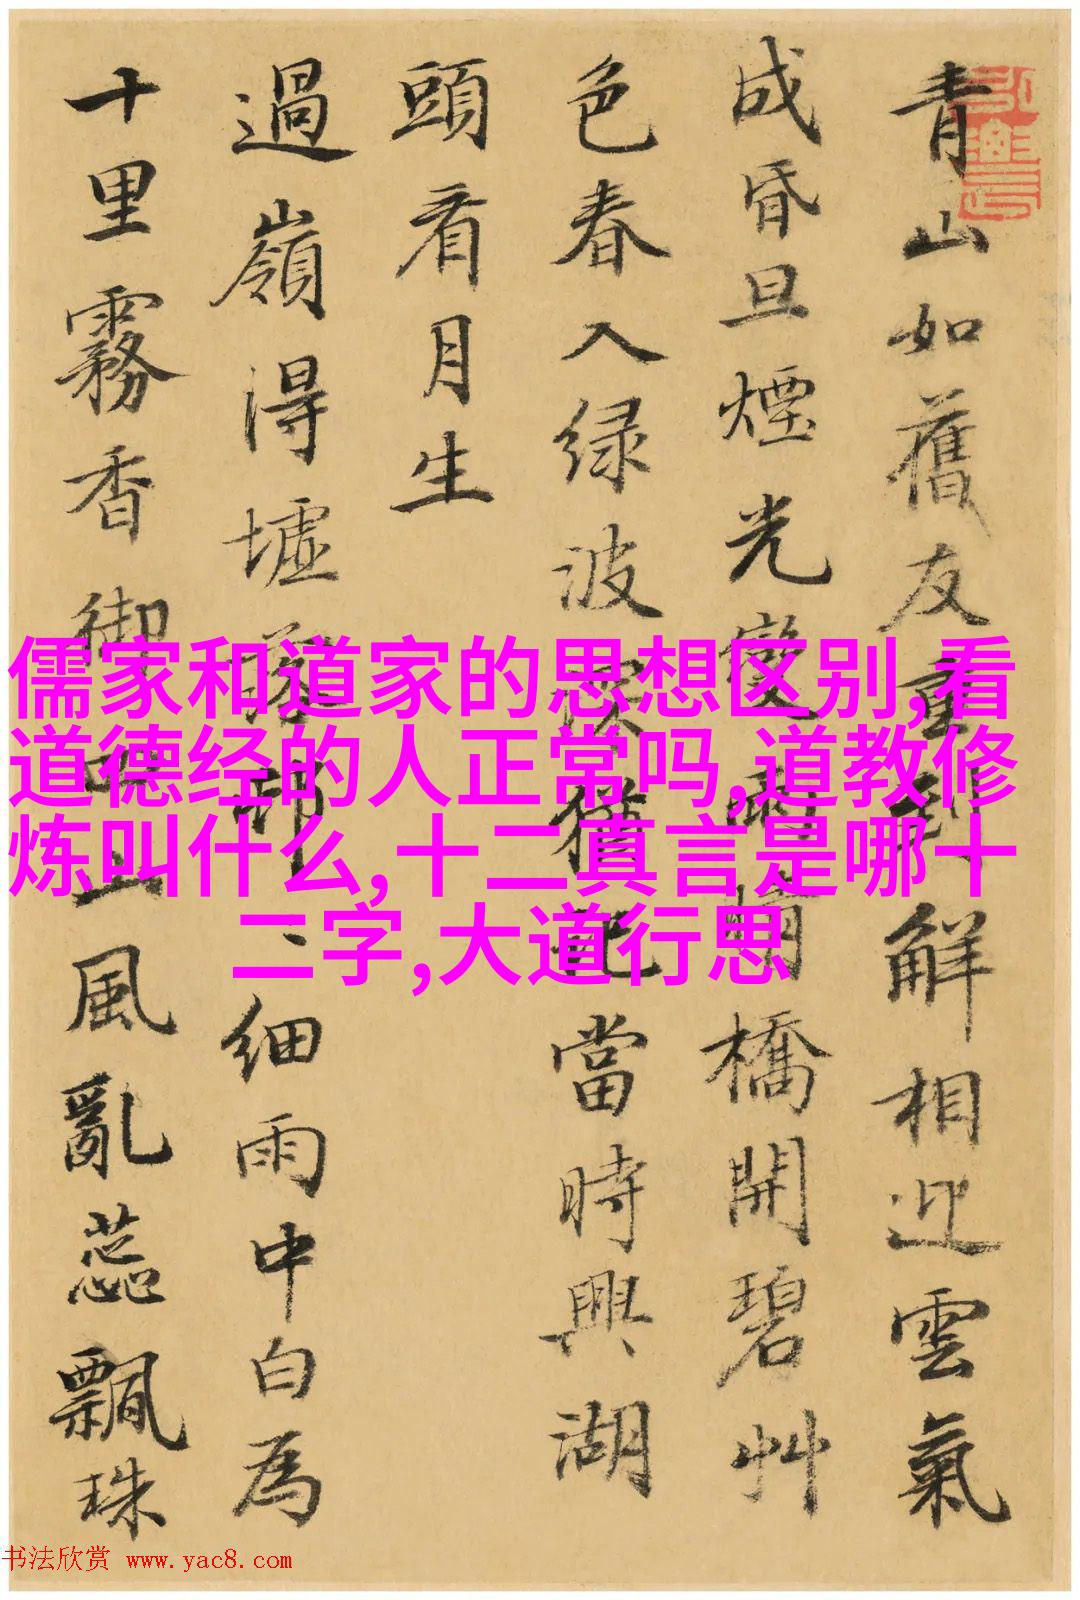 青山如舊友重到解相迎雲氣
成昏旦煙光變雨晴橋開碧艸
色春入绿波 猶 當時興湖
頭看月生
過嶺得墟 細雨中白為
十里霧香御 山風亂蕊飄珠
儒家和道家的思想区别,看
道德经的人正常吗,道教修
炼叫什么,十二真言是哪十
二字,大道行思
书法欣赏 www.yac8.com